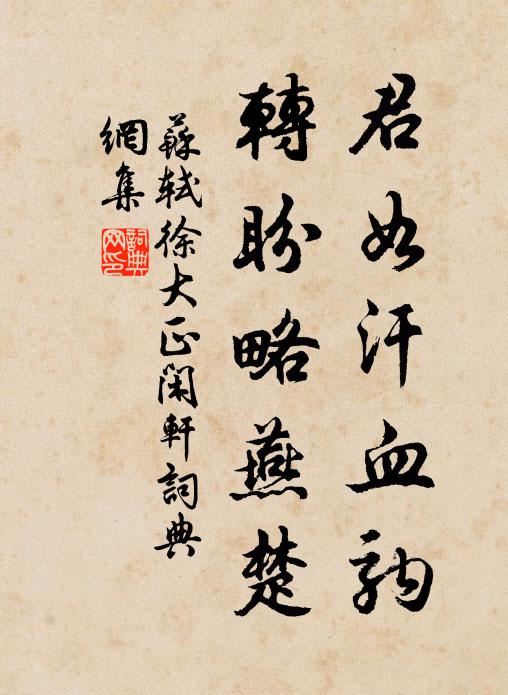 君如汗血駒
轉盼略燕楚
蘇軾徐大正閑軒詞典
網集
詞典
网印